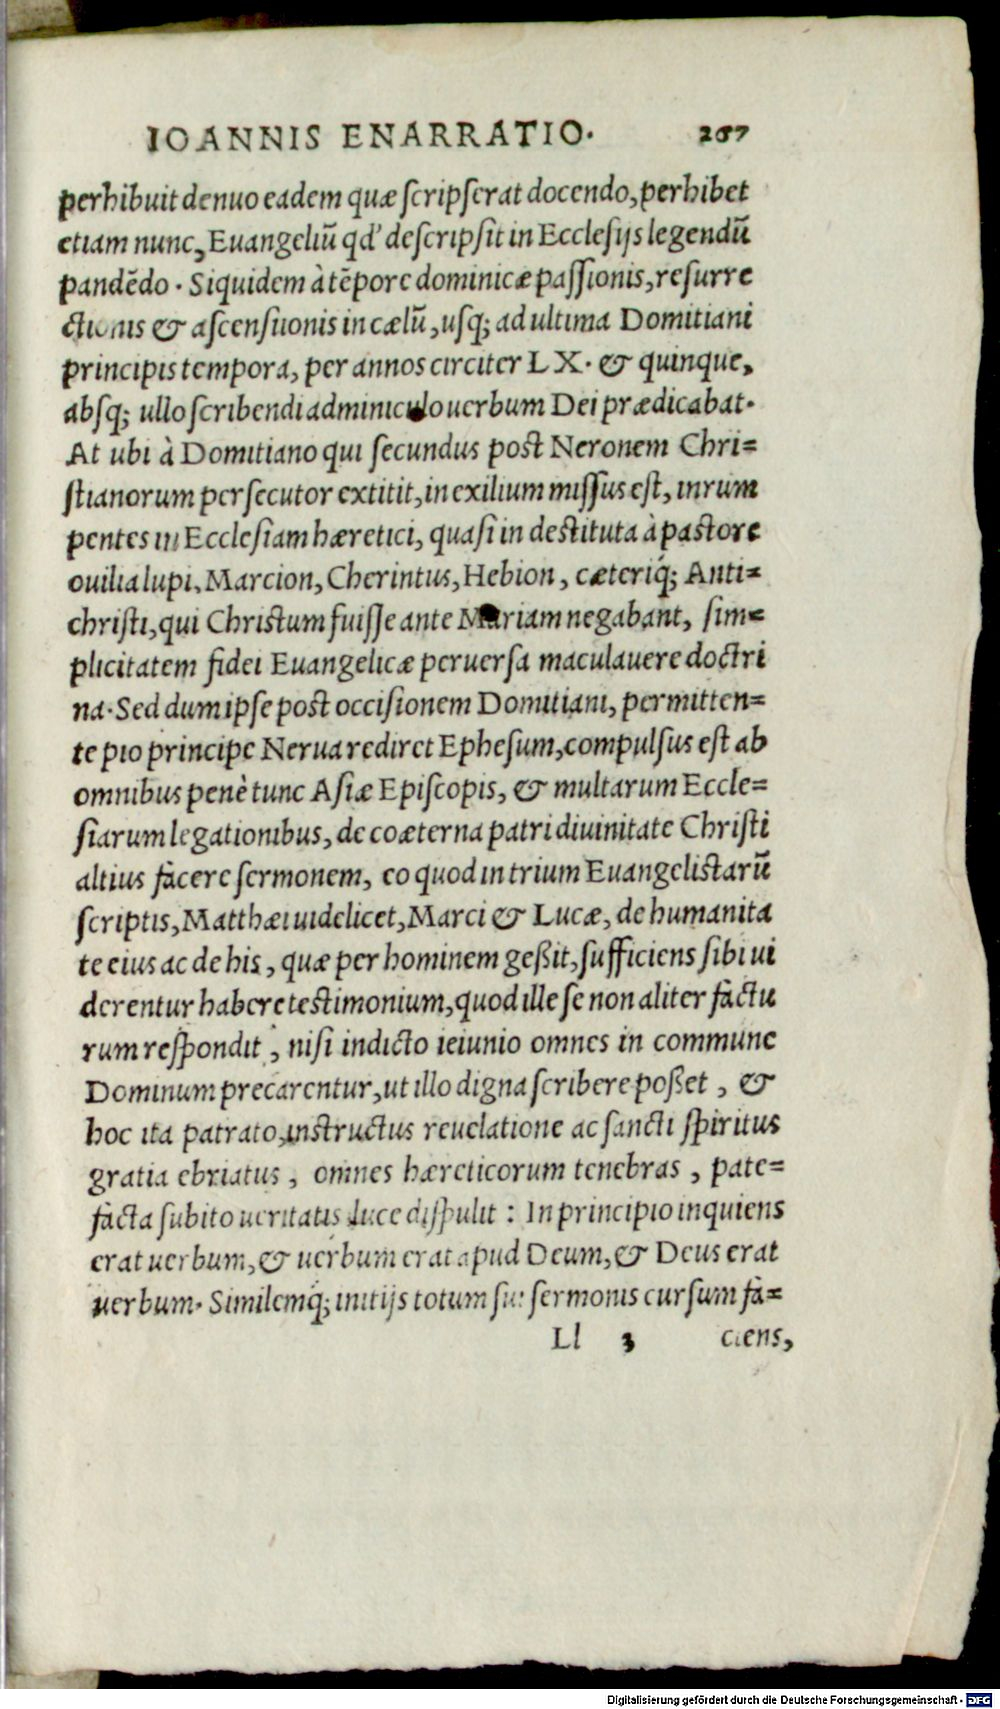 IOANNIS ENARRATIO. 267
perhibuit denuo eadem quæ scripserat docendo, perhibet
etiam nunc, Euangeliū qd' descripsit in Ecclesijs legendū
pandēdo. Siquidem à tēpore dominicæ passionis, resurre
ctionis & ascensionis in cælū, usq; ad ultima Domitiani
principis tempora, per annos circiter LX. & quinque,
absq; ullo scribendi adminiculo uerbum Dei prædicabat.
At ubi à Domitiano qui secundus post Neronem Chri=
stianorum persecutor extitit, in exilium missus est, inrum
pentes in Ecclesiam hæretici, quasi in destituta à pastore
ouilia lupi, Marcion, Cherintus, Hebion, cæteriq́; Anti=
christi, qui Christum fuisse ante Mariam negabant, sim=
plicitatem fidei Euangelicæ peruersa maculauere doctri
na. Sed dum ipse post occisionem Domitiani, permitten=
te pio principe Nerua rediret Ephesum, compulsus est ab
omnibus penè tunc Asiæ Episcopis, & multarum Eccle=
siarum legationibus, de coæterna patri diuinitate Christi
altius facere sermonem, eo quod in trium Euangelistarū
scriptis, Matthæi uidelicet, Marci & Lucæ, de humanita
te eius ac de his, quæ per hominem geßit, sufficiens sibi ui
derentur habere testimonium, quod ille se non aliter factu
rum respondit, nisi indicto ieiunio omnes in commune
Dominum precarentur, ut illo digna scribere poßet, &
hoc ita patrato, instructus reuelatione ac sancti spiritus
gratia ebriatus, omnes hæreticorum tenebras, pate=
facta subito ueritatis luce dispulit: In principio inquiens
erat uerbum, & uerbum erat apud Deum, & Deus erat
uerbum. Similemq́; initijs totum sui sermonis cursum fa=
Ll 3 ciens,
Digitalisierung gefördert durch die Deutsche Forschungsgemeinschaft - DFG